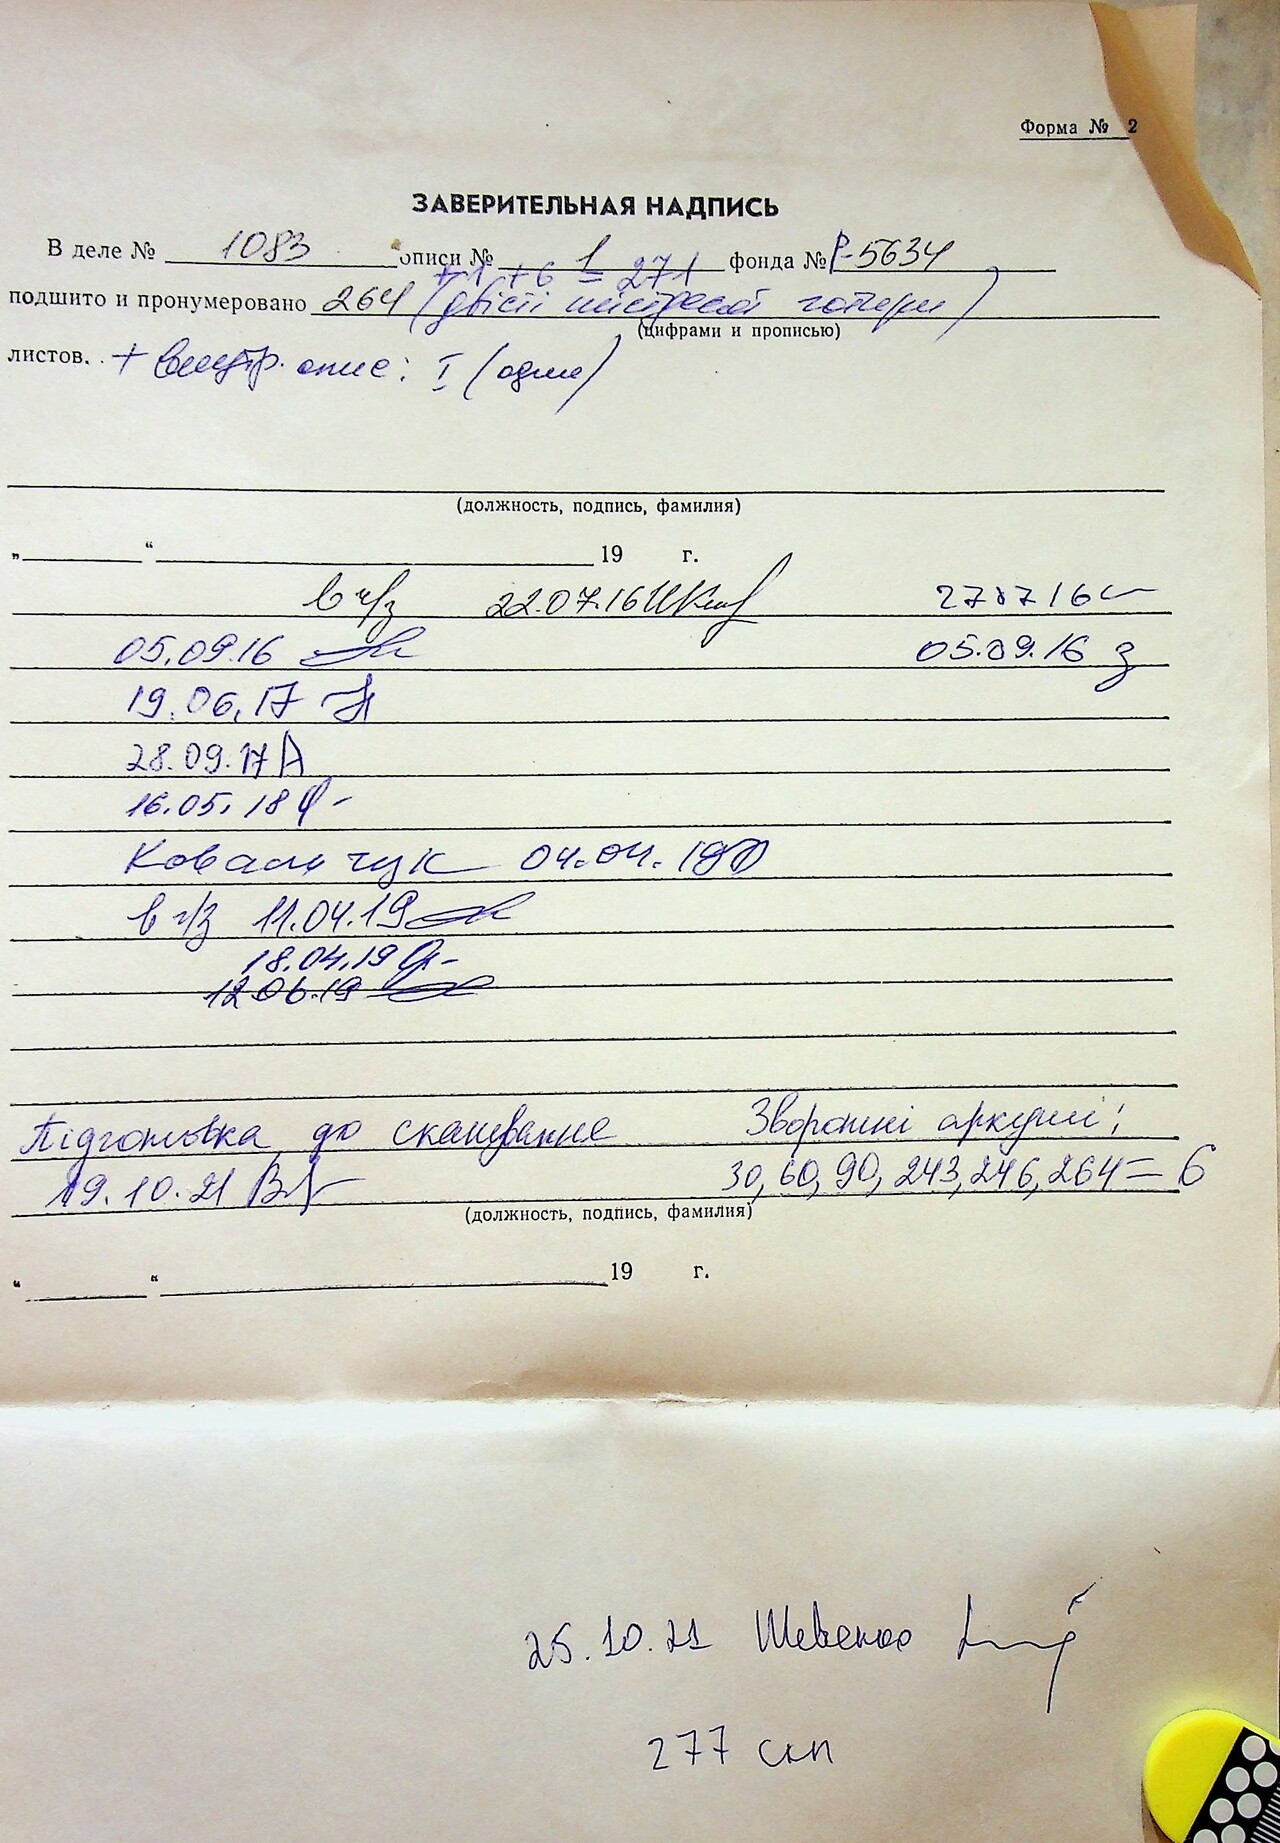 Форма № 2
ЗАВЕРИТЕЛЬНАЯ НАДПИСЬ
В деле № 1083 описи № 1 фонда № Р-5634
+1 +6 = 271
подшито и пронумеровано 264 (двісті шістдесят чотири)
(цифрами и прописью)
листов. + внутр. опис: I (один)
(должность, подпись, фамилия)
„ “ 19 г.
в ч/з 22.07.16 27.07.16
05.09.16 05.09.16
19.06.17
28.09.17
16.05.18
Ковальчук 04.04.19
в ч/з 11.04.19
18.04.19
12.06.19
Підготовка до сканування Зворотні аркуші:
19.10.21 30, 60, 90, 243, 246, 264 = 6
(должность, подпись, фамилия)
“ “ 19 г.
25.10.21 Шевченко
277 скп